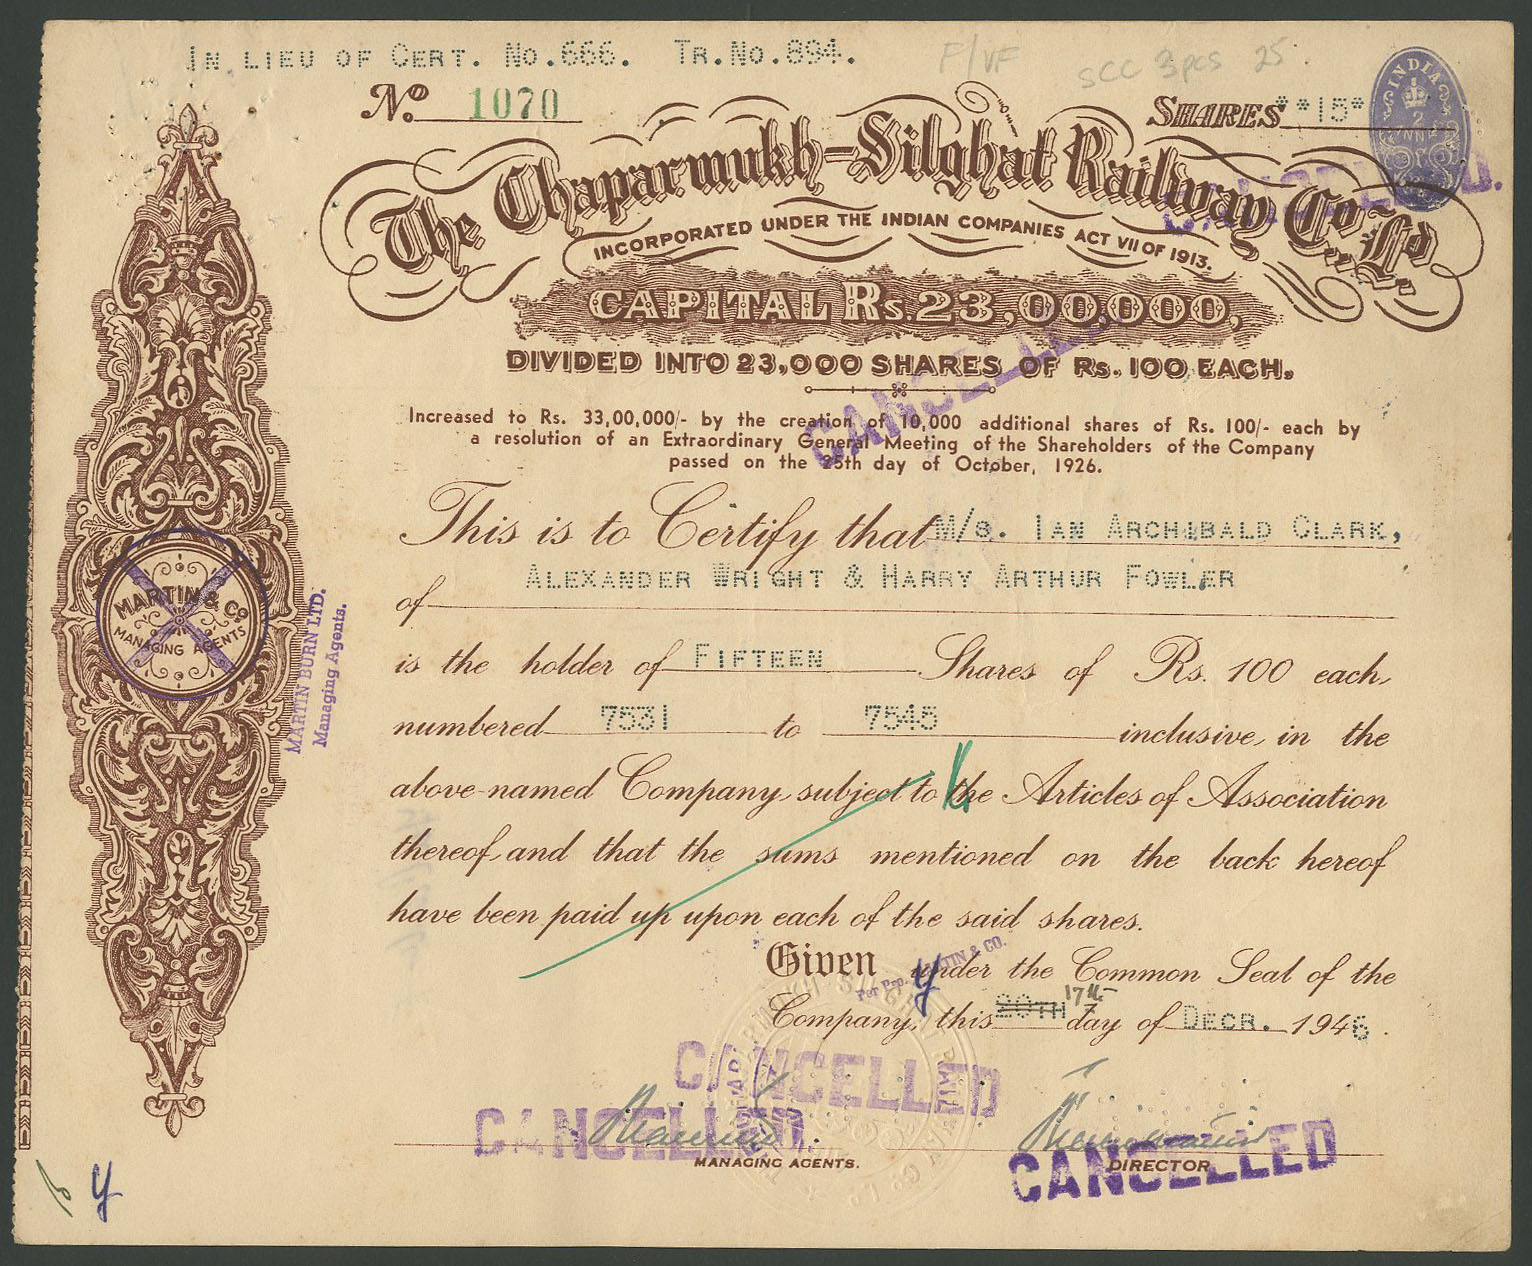 IN LIEU OF CERT. NO.666. TR.NO.894.
F/VF
SCC 3pcs 25
No. 1070
SHARES **15*
INDIA
2
The Chaparmukh-Silghat Railway Co. Ld.
INCORPORATED UNDER THE INDIAN COMPANIES ACT VII OF 1913.
CAPITAL Rs. 23,00,000,
DIVIDED INTO 23,000 SHARES OF Rs. 100 EACH.
CANCELLED
Increased to Rs. 33,00,000/- by the creation of 10,000 additional shares of Rs. 100/- each by
a resolution of an Extraordinary General Meeting of the Shareholders of the Company
passed on the 25th day of October, 1926.
This is to Certify that M/s. IAN ARCHIBALD CLARK,
ALEXANDER WRIGHT & HARRY ARTHUR FOWLER
of
is the holder of FIFTEEN Shares of Rs. 100 each,
numbered 7531 to 7545 inclusive, in the
above-named Company, subject to the Articles of Association
thereof, and that the sums mentioned on the back hereof
have been paid up upon each of the said shares.
MARTIN & Co
MANAGING AGENTS
MARTIN BURN LTD.
Managing Agents.
Per Pro. MARTIN & CO.
Given under the Common Seal of the
Company, this 20TH 17th day of DECR. 1946.
CANCELLED
CANCELLED
CANCELLED
MANAGING AGENTS.
DIRECTOR